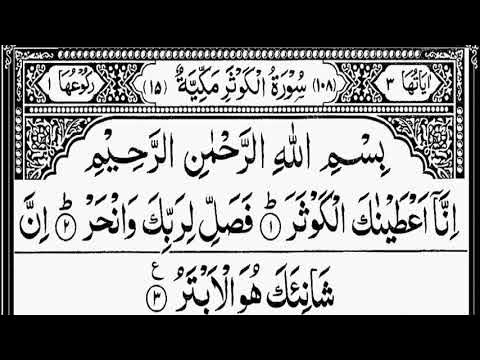 اٰيَاتُهَا ٣ (١٠٨) سُوْرَةُ الْكَوْثَرِ مَكِّيَّةٌ (١٥) رُكُوْعُهَا ١
بِسْمِ اللّٰهِ الرَّحْمٰنِ الرَّحِيْمِ
اِنَّاۤ اَعْطَيْنٰكَ الْكَوْثَرَ ؕ﴿١﴾ فَصَلِّ لِرَبِّكَ وَانْحَرْ ؕ﴿٢﴾ اِنَّ
شَانِئَكَ هُوَ الْاَبْتَرُ ﴿٣﴾ ع